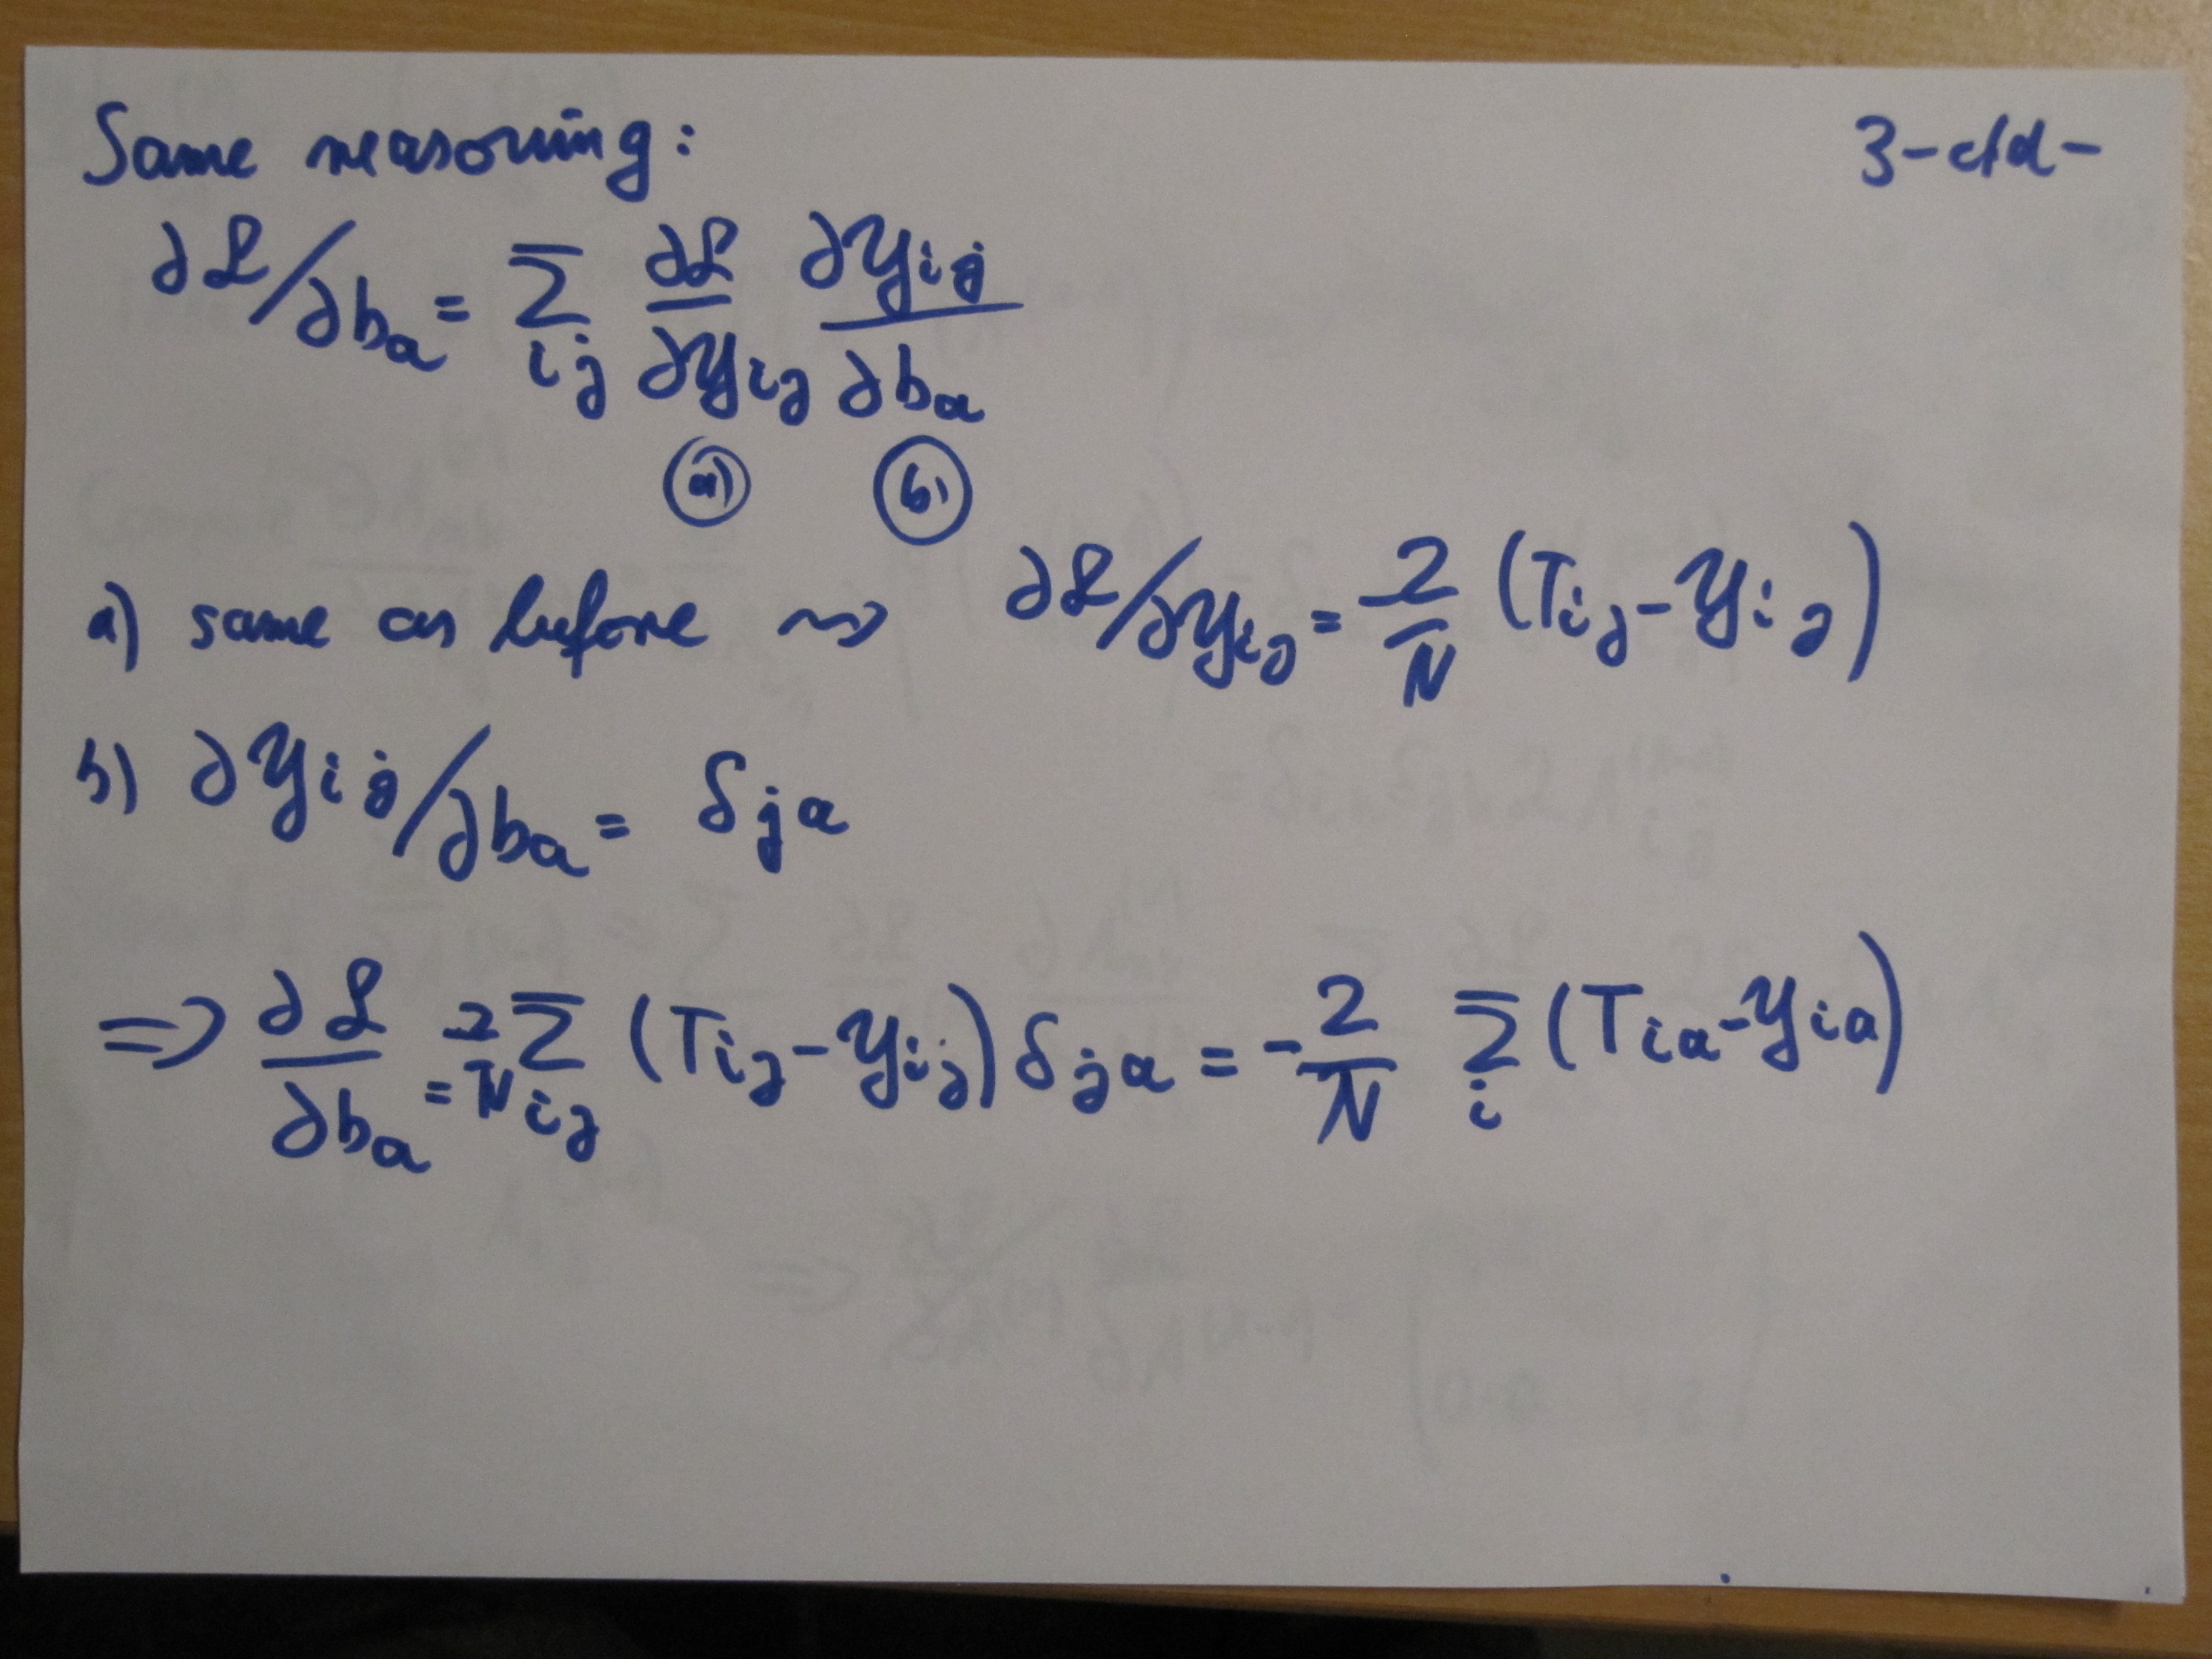 Same reasoning:
3-ctd-
∂ℒ/∂b_a = Σ_ij ∂ℒ/∂y_ij ∂y_ij/∂b_a
a) b)
a) same as before ⇝ ∂ℒ/∂y_ij = -2/N (T_ij - y_ij)
b) ∂y_ij/∂b_a = δ_ja
⇒ ∂ℒ/∂b_a = -2/N Σ_ij (T_ij - y_ij) δ_ja = -2/N Σ_i (T_ia - y_ia)